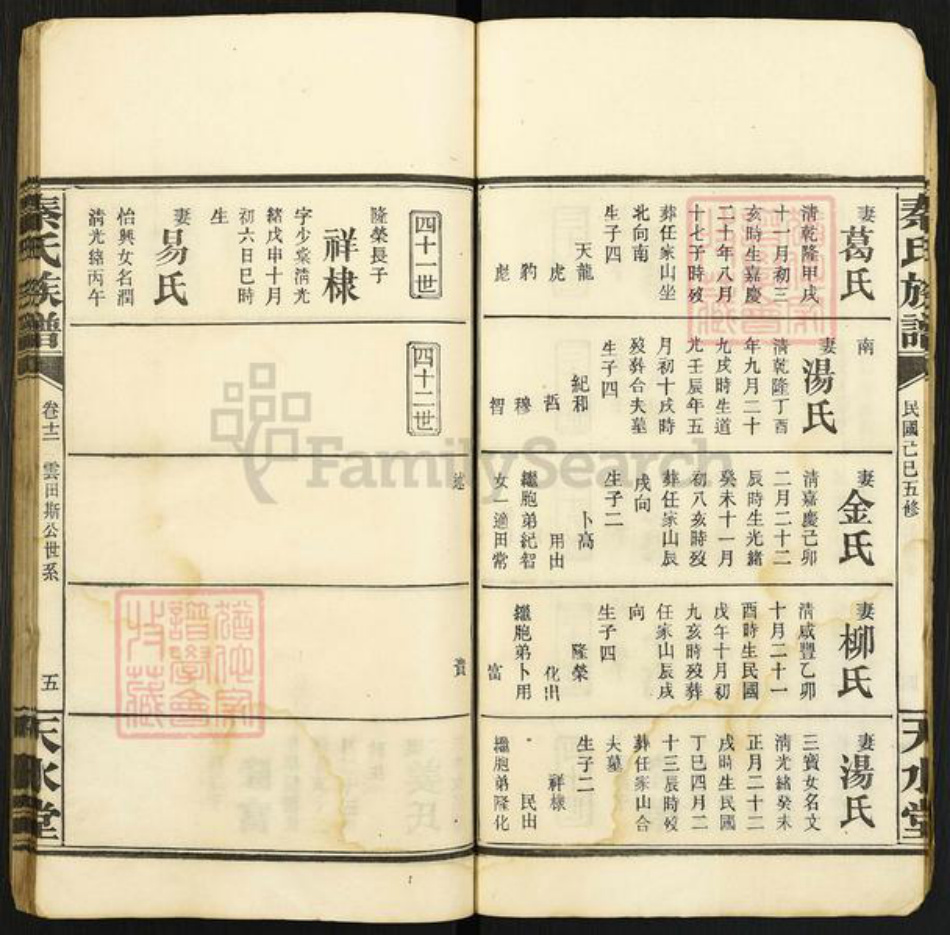 秦氏族譜
民國己巳五修
天水堂
妻葛氏
清乾隆甲戌
十一月初三
亥時生嘉慶
二十年八月
十七子時歿
葬任家山坐
北向南
生子四
天龍
虎
豹
彪
南
妻湯氏
清乾隆丁酉
年九月二十
九戌時生道
光壬辰年五
月初十戌時
歿葬合夫墓
生子四
紀和
哲
穆
智
妻金氏
清嘉慶己卯
二月二十二
辰時生光緒
癸未十一月
初八亥時歿
葬任家山辰
戌向
生子二
卜高
用出
繼胞弟紀智
女一適田常
述
妻柳氏
清咸豐乙卯
十月二十一
酉時生民國
戊午十月初
九亥時歿葬
任家山辰戌
向
生子四
隆榮
化出
繼胞弟卜用
富
貴
妻湯氏
三寶女名文
清光緒癸未
正月二十二
戌時生民國
丁巳四月二
十三辰時歿
葬任家山合
夫墓
生子二
祥棣
民出
繼胞弟隆化
四十一世
隆榮長子
祥棣
字少棠清光
緒戊申十月
初六日巳時
生
妻易氏
怡興女名潤
清光緒丙午
四十二世
秦氏族譜
卷十二
雲田斯公世系
五
天水堂
FamilySearch